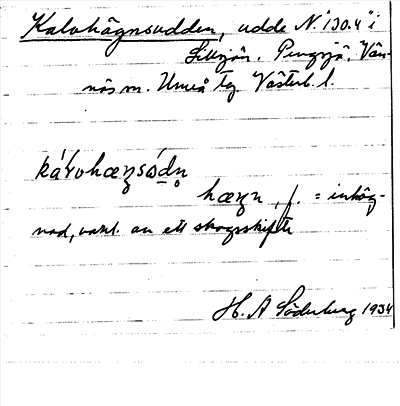 Kalvhägnsudden, udde N. "130.4" i
Lillsjön. Pengsjö, Vän-
näs sn. Umeå tg. Västerb. l.
kálvohæŋsódn̥
hæŋn, f. = inhäg-
nad, vanl. av ett skogsskifte
H. A Söderberg 1934